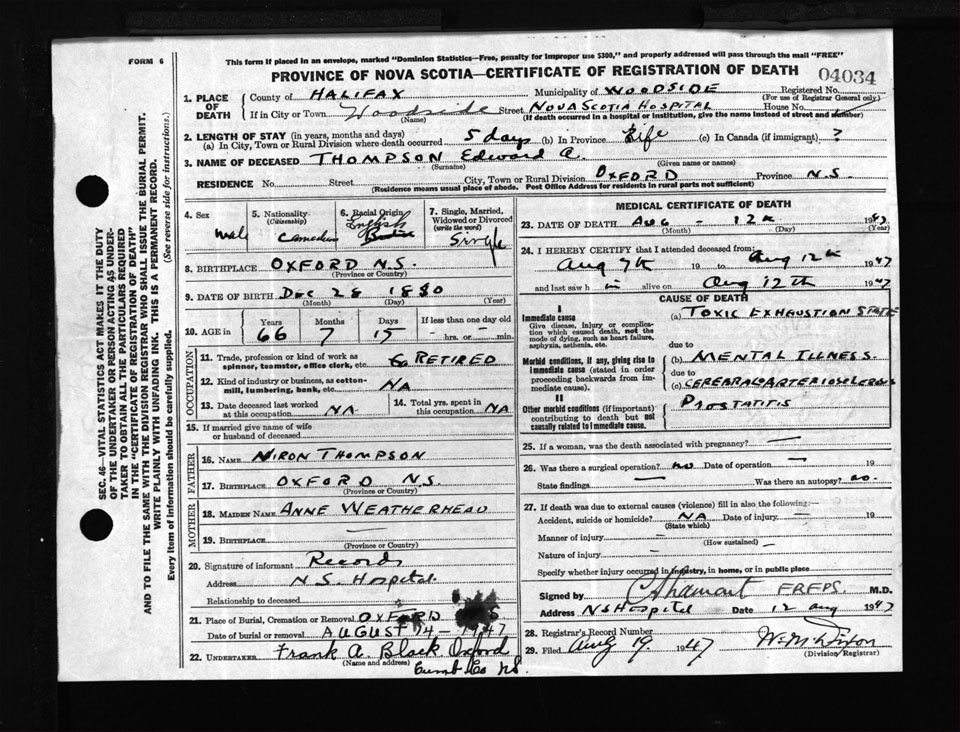 FORM 6
This form if placed in an envelope, marked "Dominion Statistics—Free, penalty for improper use $300," and properly addressed will pass through the mail "FREE"
PROVINCE OF NOVA SCOTIA—CERTIFICATE OF REGISTRATION OF DEATH 04034
1. PLACE OF DEATH
County of HALIFAX Municipality of WOODSIDE Registered No.
(For use of Registrar General only.)
If in City or Town Woodside Street NOVA SCOTIA HOSPITAL House No.
(Name) (If death occurred in a hospital or institution, give the name instead of street and number)
2. LENGTH OF STAY (in years, months and days)
(a) In City, Town or Rural Division where death occurred 5 days (b) In Province Life (c) In Canada (if immigrant) ?
3. NAME OF DECEASED THOMPSON Edward A.
(Surname) (Given name or names)
RESIDENCE No. Street City, Town or Rural Division OXFORD Province N.S.
(Residence means usual place of abode. Post Office Address for residents in rural parts not sufficient)
4. Sex Male
5. Nationality (Citizenship) Canadian
6. Racial Origin English
7. Single, Married, Widowed or Divorced (write the word) Single
8. BIRTHPLACE OXFORD N.S.
(Province or Country)
9. DATE OF BIRTH Dec 28 1880
(Month) (Day) (Year)
10. AGE in Years Months Days If less than one day old
66 7 15 - hrs. or - min.
OCCUPATION
11. Trade, profession or kind of work as spinner, teamster, office clerk, etc. RETIRED
12. Kind of industry or business, as cotton-mill, lumbering, bank, etc. NA
13. Date deceased last worked at this occupation NA
14. Total yrs. spent in this occupation NA
15. If married give name of wife or husband of deceased
FATHER
16. NAME NIRON THOMPSON
17. BIRTHPLACE OXFORD N.S.
(Province or Country)
MOTHER
18. MAIDEN NAME ANNE WEATHERHEAD
19. BIRTHPLACE —
(Province or Country)
20. Signature of informant Records
Address N.S. Hospital
Relationship to deceased
21. Place of Burial, Cremation or Removal OXFORD
Date of burial or removal AUGUST 14 - 1947
22. UNDERTAKER Frank A. Black Oxford
(Name and address) Cumb. Co NS.
MEDICAL CERTIFICATE OF DEATH
23. DATE OF DEATH Aug - 12th 1947
(Month) (Day) (Year)
24. I HEREBY CERTIFY that I attended deceased from:
Aug 7th 19 to Aug 12th 1947
and last saw h im alive on Aug 12th 1947
CAUSE OF DEATH
I
Immediate cause (a) TOXIC EXHAUSTION STATE
Give disease, injury or complication which caused death, not the mode of dying, such as heart failure, asphyxia, asthenia, etc.
due to
Morbid conditions, if any, giving rise to immediate cause (stated in order proceeding backwards from immediate cause). (b) MENTAL ILLNESS.
due to
(c) CEREBRAL ARTERIOSCLEROSIS
II
Other morbid conditions (if important) contributing to death but not causally related to immediate cause. PROSTATITIS
25. If a woman, was the death associated with pregnancy? —
26. Was there a surgical operation? no Date of operation — 19
State findings — Was there an autopsy? no.
27. If death was due to external causes (violence) fill in also the following:—
Accident, suicide or homicide? NA Date of injury — 19
(State which)
Manner of injury —
(How sustained) —
Nature of injury —
Specify whether injury occurred in industry, in home, or in public place
Signed by M.D.
Address NS Hospital Date 12 Aug 1947
28. Registrar's Record Number
29. Filed Aug 19 1947
(Division Registrar)
SEC. 46—VITAL STATISTICS ACT MAKES IT THE DUTY
OF THE UNDERTAKER OR PERSON ACTING AS UNDER-
TAKER TO OBTAIN ALL THE PARTICULARS REQUIRED
IN THE "CERTIFICATE OF REGISTRATION OF DEATH"
AND TO FILE THE SAME WITH THE DIVISION REGISTRAR WHO SHALL ISSUE THE BURIAL PERMIT.
WRITE PLAINLY WITH UNFADING INK. THIS IS A PERMANENT RECORD.
Every item of information should be carefully supplied. (See reverse side for instructions.)